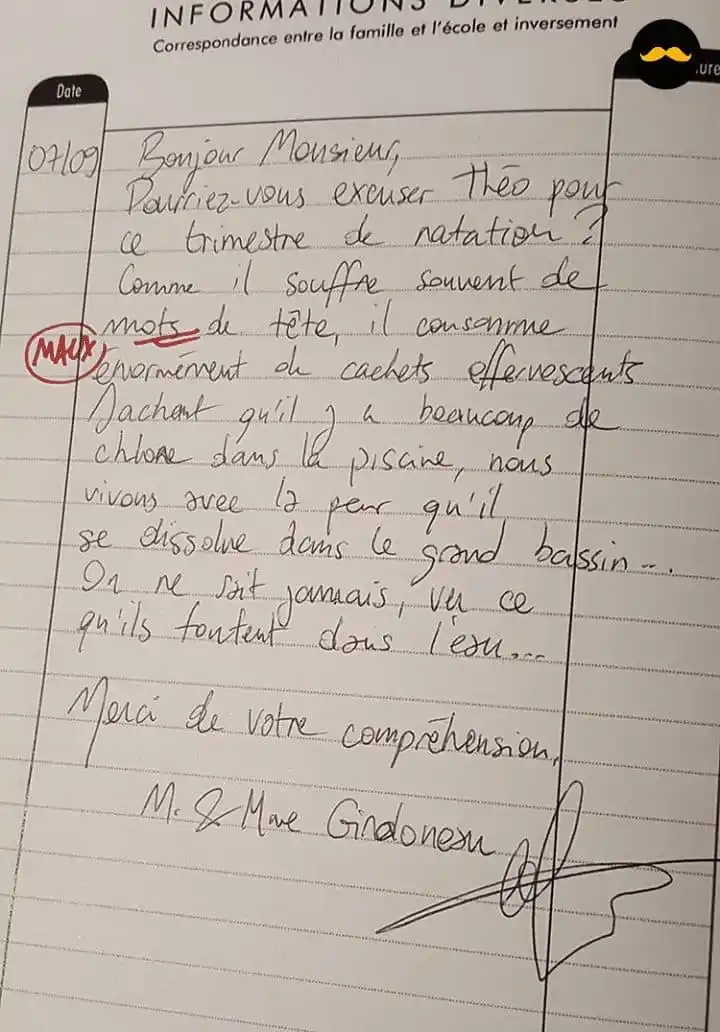 INFORMATIONS DIVERSES
Correspondance entre la famille et l'école et inversement
Date
07/09
Bonjour Monsieur,
Pourriez-vous excuser Théo pour
ce trimestre de natation ?
Comme il souffre souvent de
mots de tête, il consomme
MAUX
énormément de cachets effervescents
Sachant qu'il y a beaucoup de
chlore dans la piscine, nous
vivons avec la peur qu'il
se dissolve dans le grand bassin...
On ne sait jamais, vu ce
qu'ils foutent dans l'eau...
Merci de votre compréhension,
M. & Mme Girdoneau